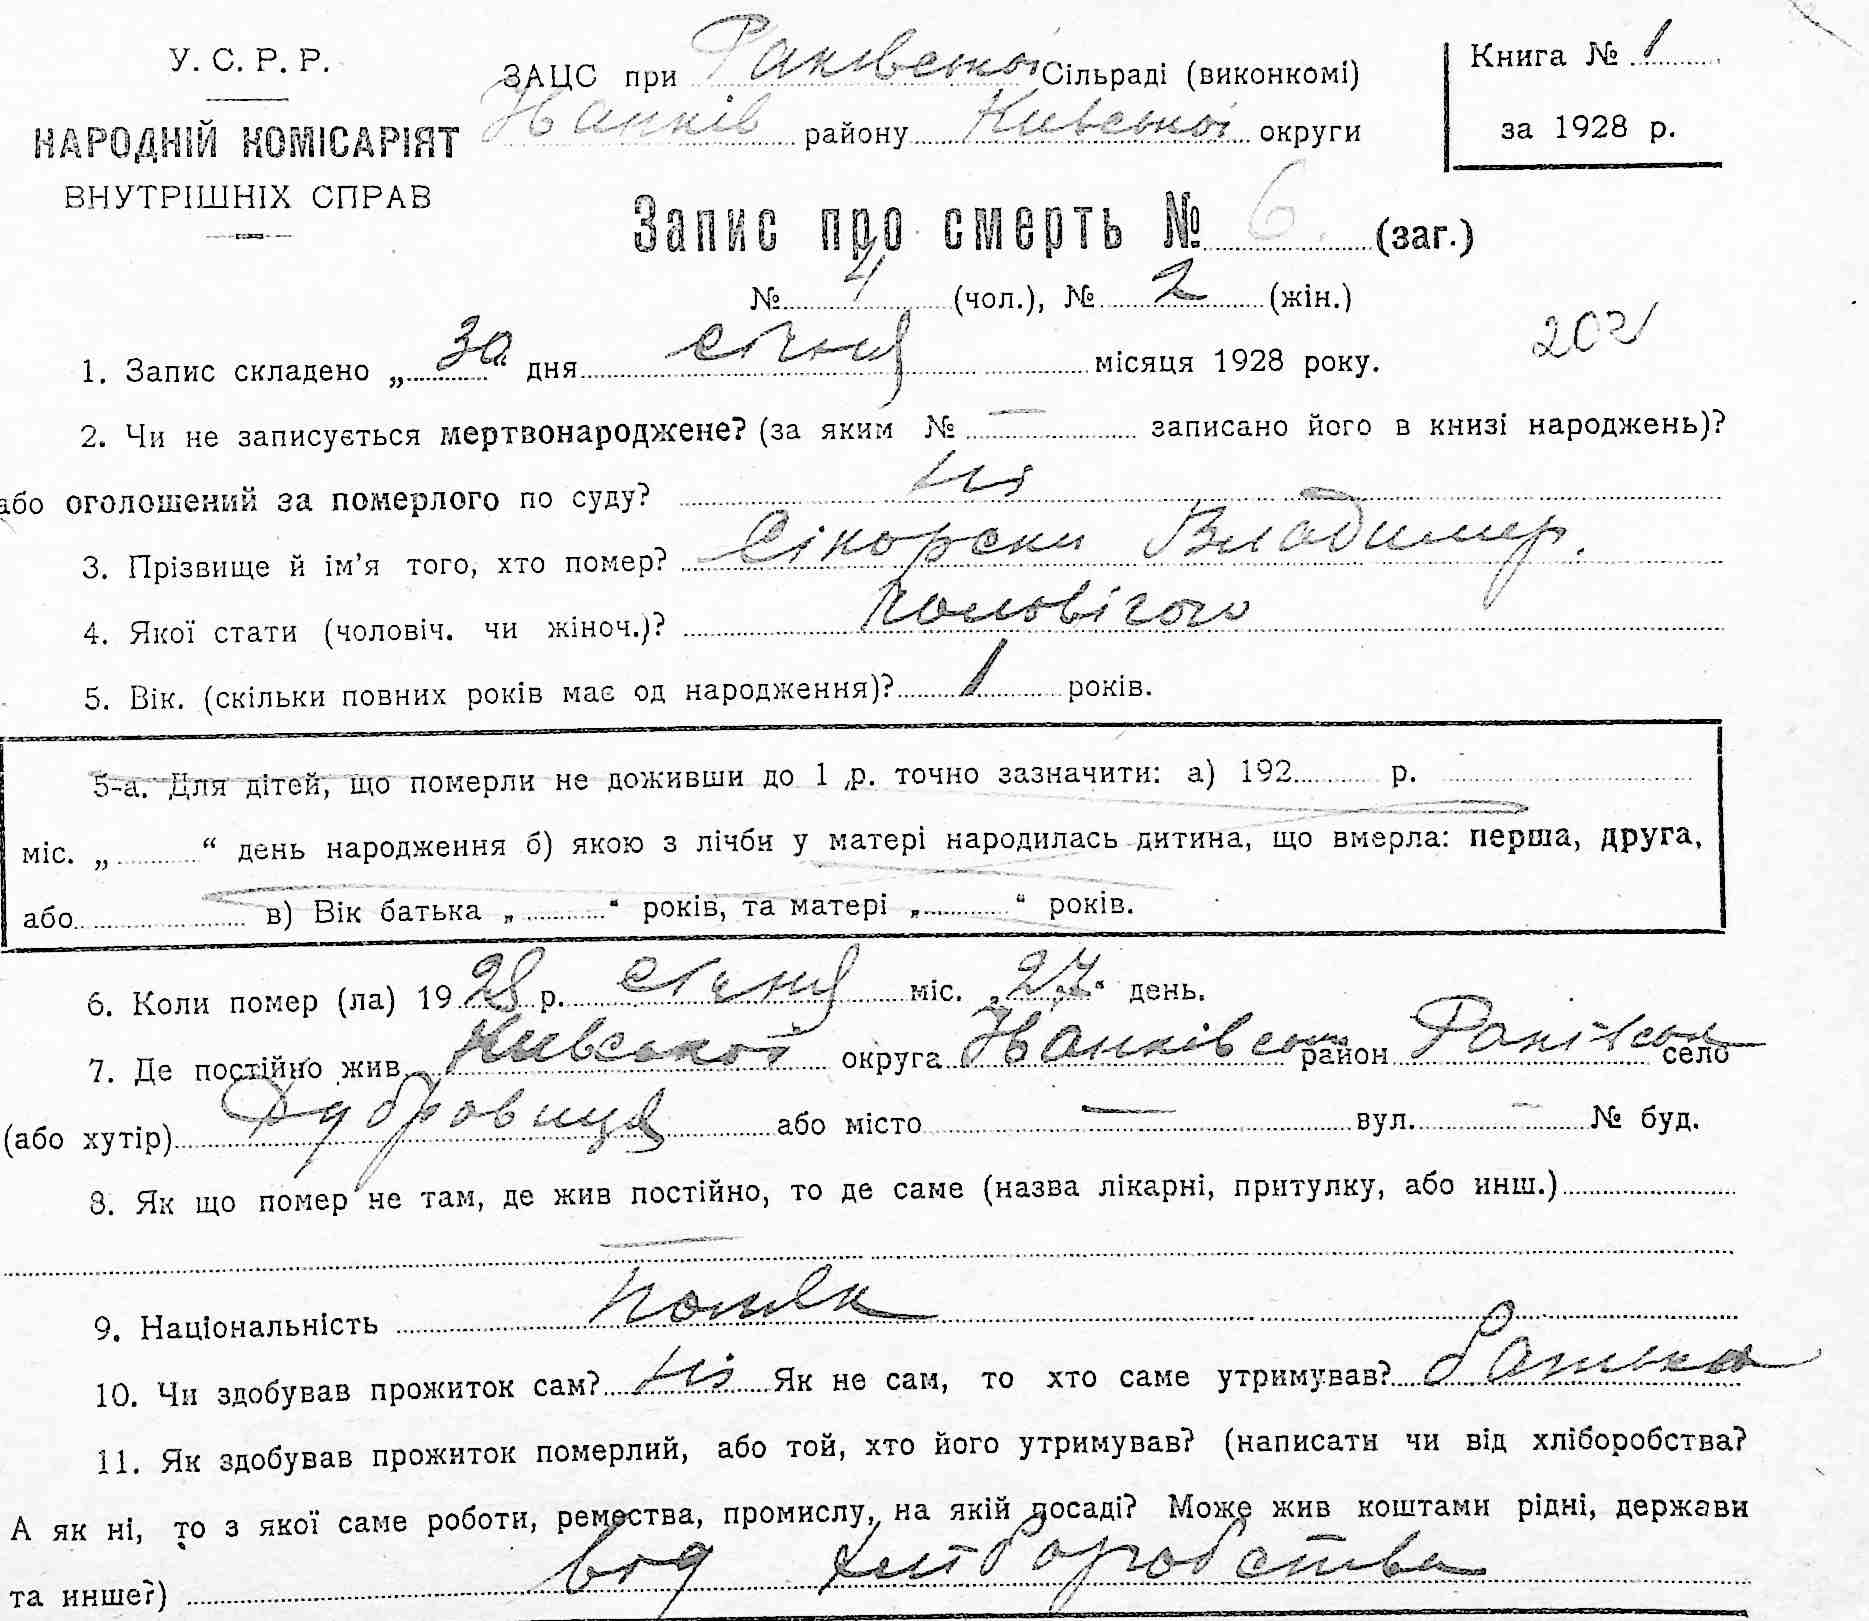 У. С. Р. Р.
НАРОДНІЙ КОМІСАРІЯТ
ВНУТРІШНІХ СПРАВ
ЗАЦС при Раківської Сільраді (виконкомі)
району Київської округи
Книга № 1
за 1928 р.
Запис про смерть № 6 (заг.)
№ 4 (чол.), № 2 (жін.)
1. Запис складено „30“ дня січня місяця 1928 року.
2. Чи не записується мертвонароджене? (за яким № — записано його в книзі народжень)?
або оголошений за померлого по суду? ні
3. Прізвище й ім'я того, хто помер? Сікорски Владимир.
4. Якої стати (чоловіч. чи жіноч.)? Чоловічого
5. Вік. (скільки повних років має од народження)? 1 років.
5-а. Для дітей, що померли не доживши до 1 р. точно зазначити: а) 192 р.
міс. „ “ день народження б) якою з лічби у матері народилась дитина, що вмерла: перша, друга,
або в) Вік батька „ “ років, та матері „ “ років.
6. Коли помер (ла) 1928 р. січня міс. „27“ день.
7. Де постійно жив Київської округа район село
(або хутір) Дубровиця або місто — вул. — № буд.
8. Як що помер не там, де жив постійно, то де саме (назва лікарні, притулку, або инш.)
—
9. Національність поляк
10. Чи здобував прожиток сам? ні Як не сам, то хто саме утримував? батько
11. Як здобував прожиток померлий, або той, хто його утримував? (написати чи від хліборобства?
А як ні, то з якої саме роботи, ремества, промислу, на якій посаді? Може жив коштами рідні, держави
та инше?) від хліборобства